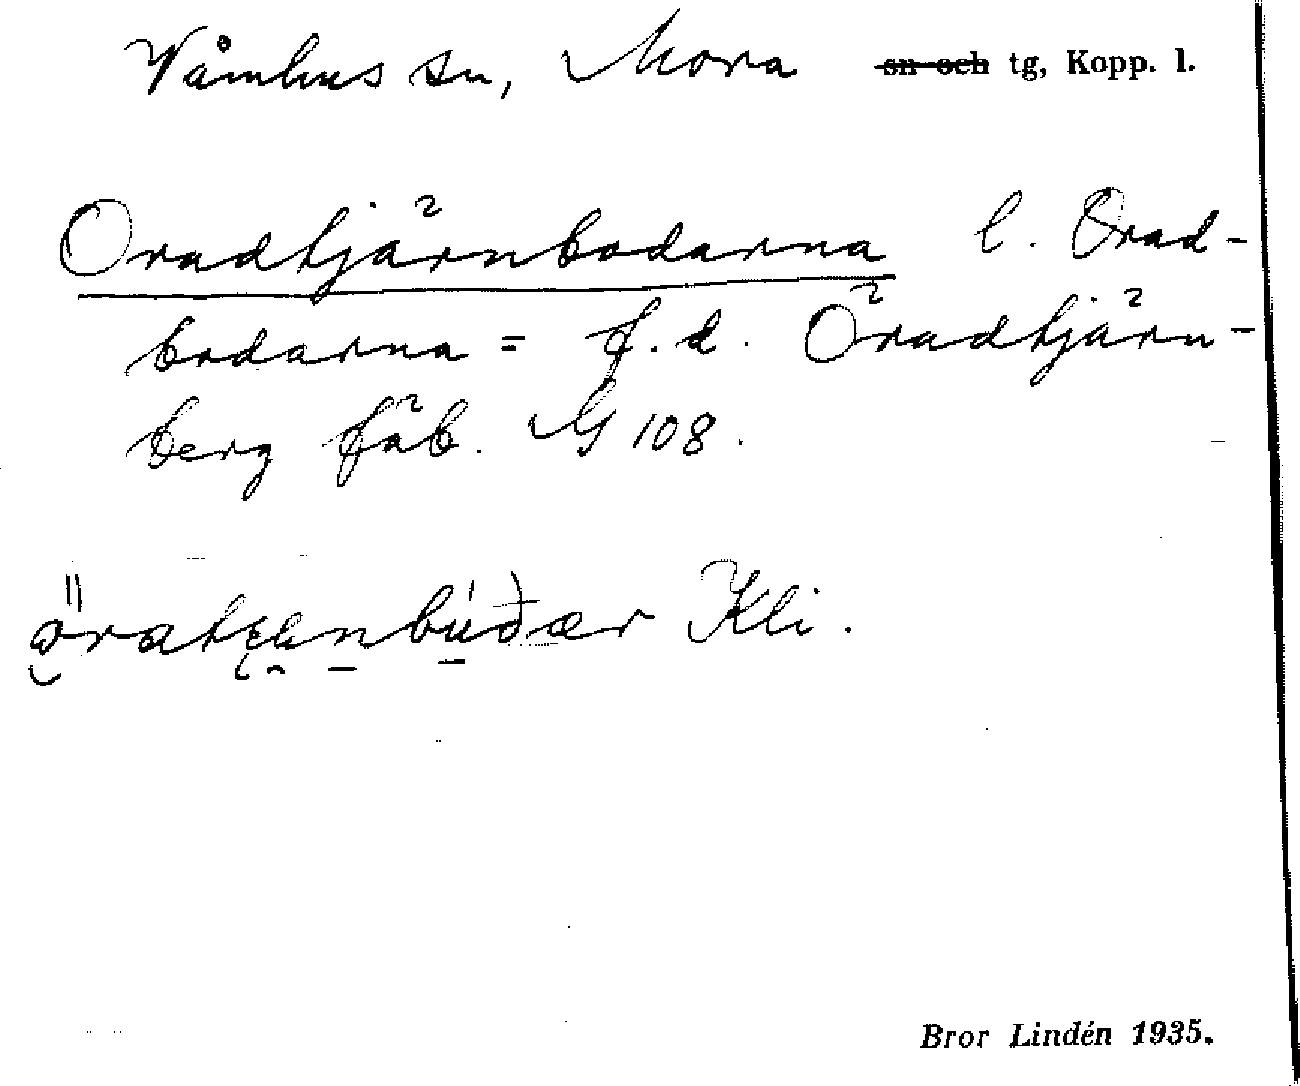 Våmhus sn, Mora sn och tg, Kopp. l.
Oradtjärnbodarna l. Orad-
bodarna = f.d. Öradtjärn-
berg fäb. G 108.
Kli.
Bror Lindén 1935.